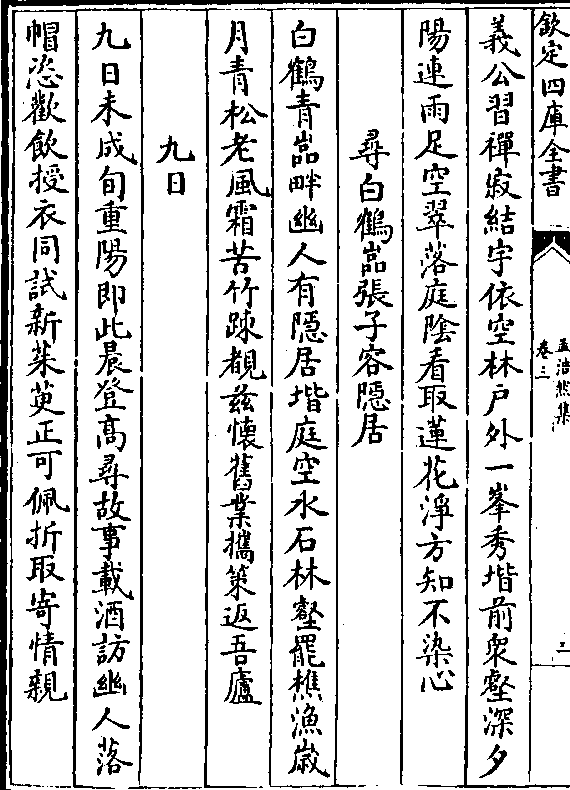 欽定四庫全書
孟浩然集
卷三
三
義公習禪寂結宇依空林戶外一峯秀堦前衆壑深夕
陽連雨足空翠落庭陰看取蓮花淨方知不染心
尋白鶴嵓張子容隱居
白鶴青嵓畔幽人有隱居堦庭空水石林壑罷樵漁歲
月青松老風霜苦竹踈覩兹懷舊業攜策返吾廬
九日
九日未成旬重陽即此晨登髙尋故事載酒訪幽人落
帽恣歡飲授衣同試新茱萸正可佩折取寄情親